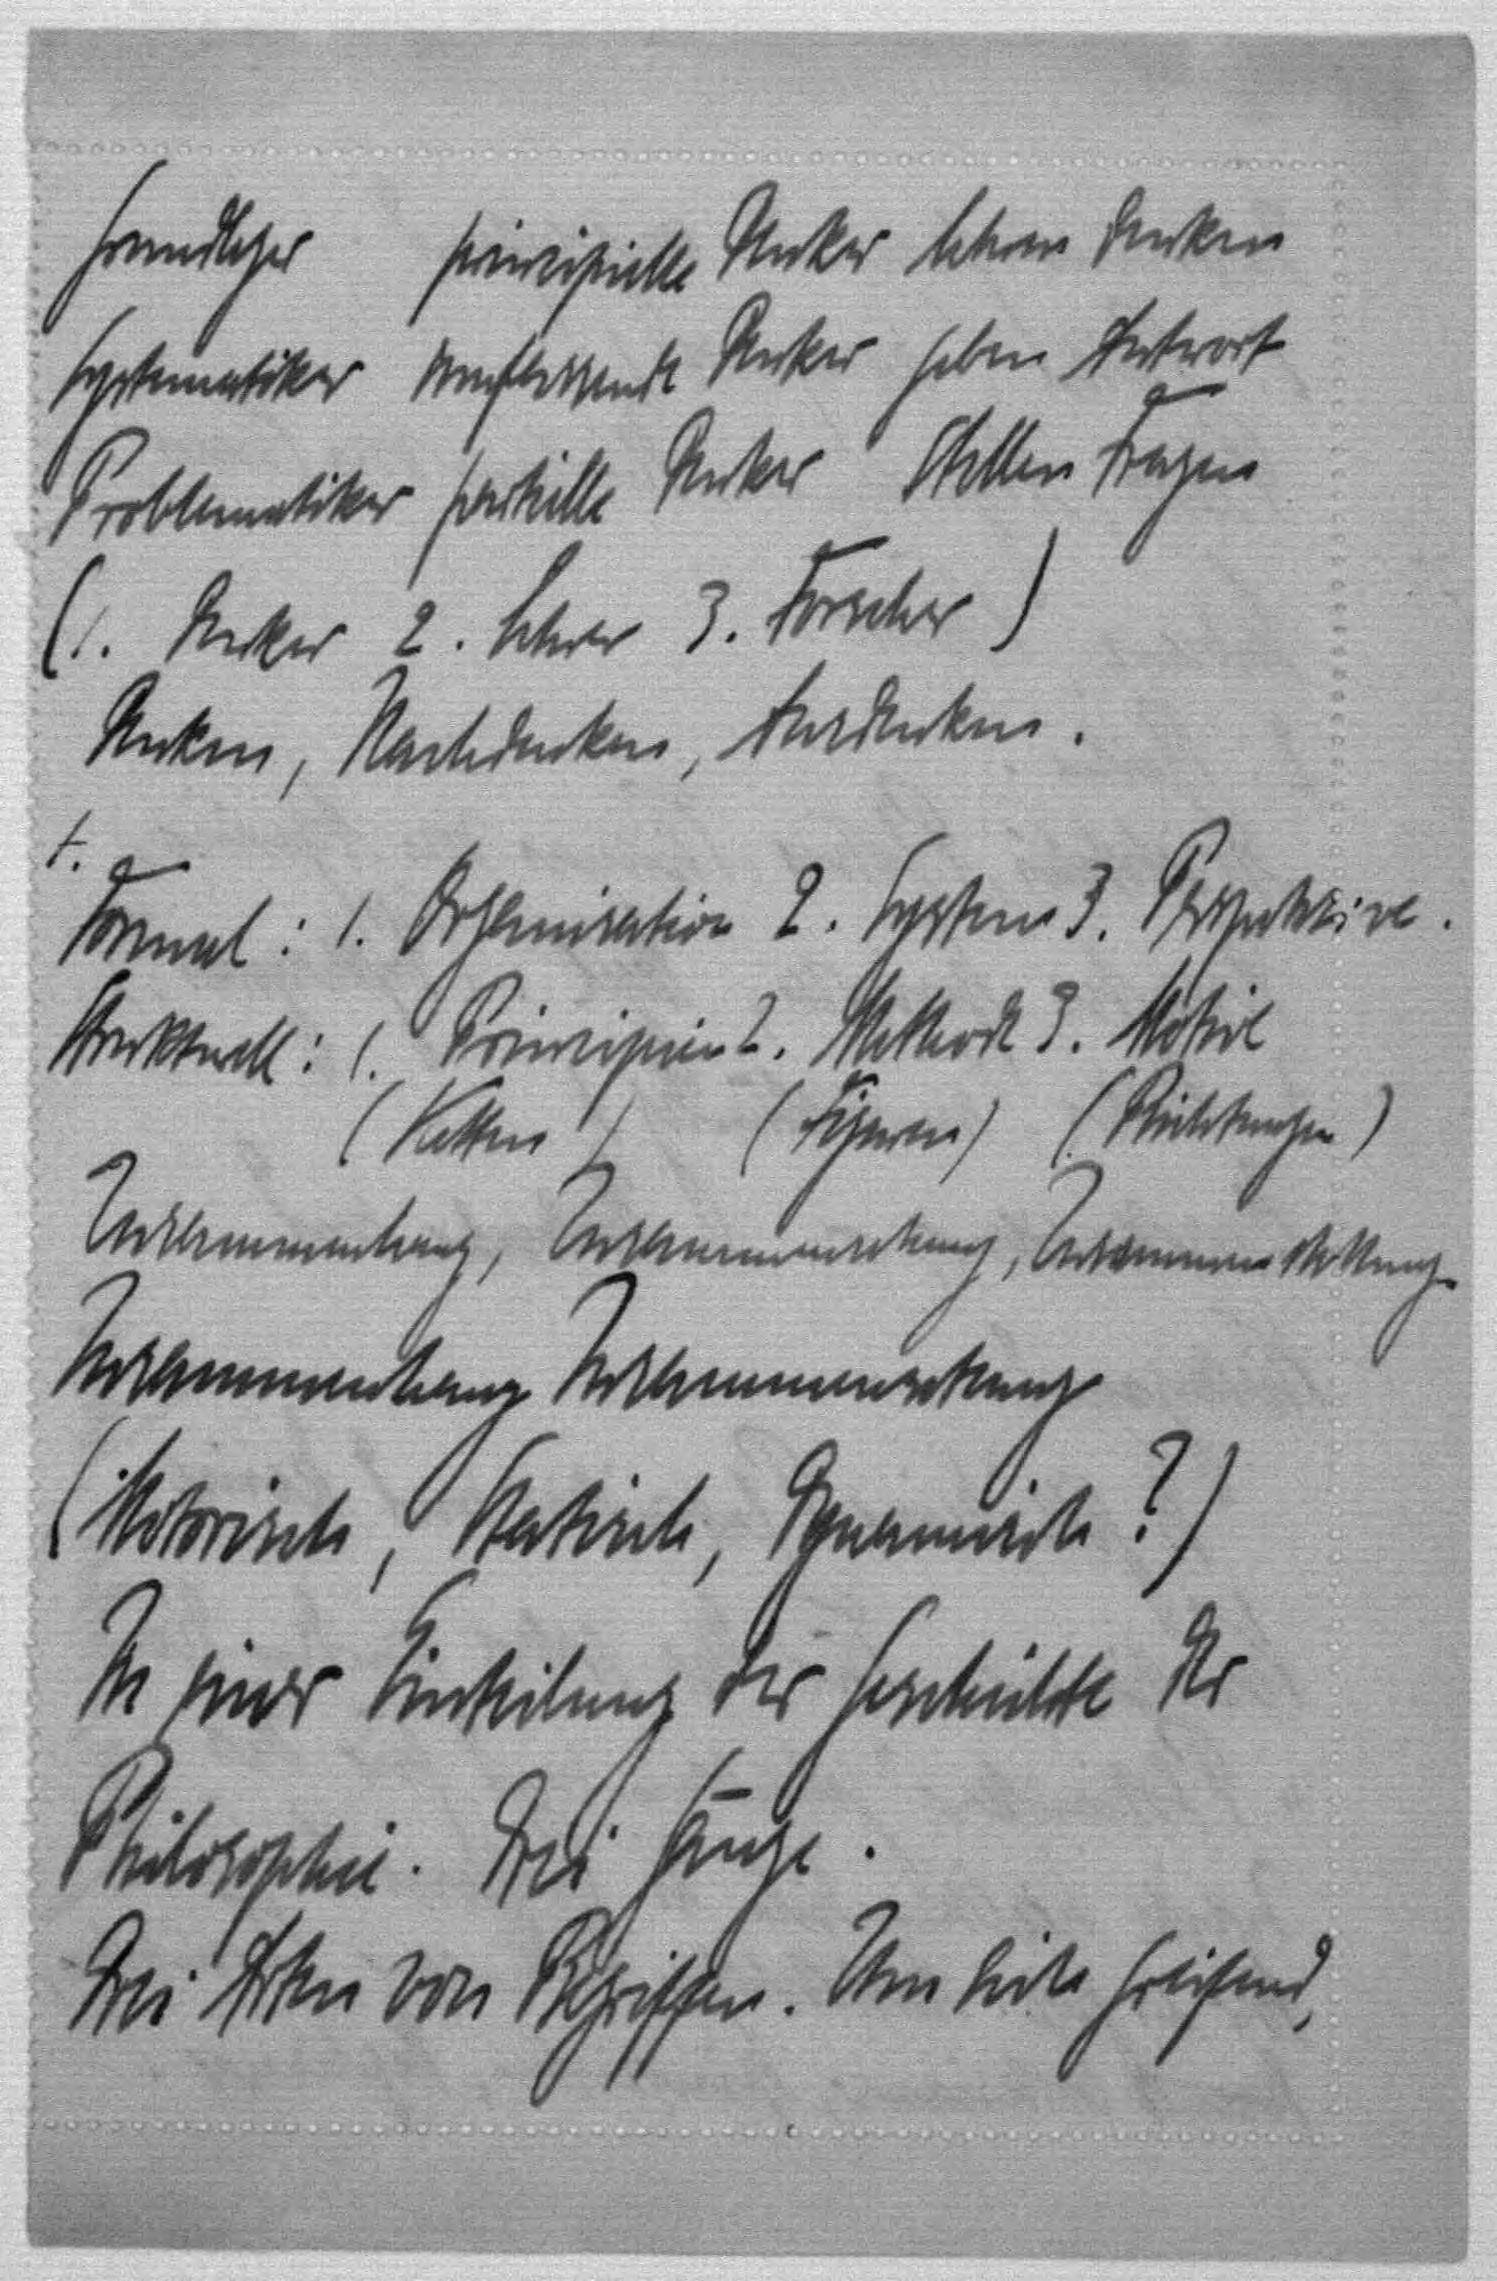 Grundleger prinzipielle Denker lehren denken
Systematiker umfassende Denker geben Antwort
Problematiker partielle Denker Stellen Fragen
(1. Denker 2. Lehrer 3. Forscher)
Denken, Nachdenken, Ausdenken.
Formal: 1. Organisation 2. System 3. Perspektive.
Strukturell: 1. Principien 2. Methode 3. Motive
(Ketten) (Figuren) (Richtungen)
Zusammenhang, Zusammensetzung, Zusammenstellung
Zusammenhang Zusammensetzung
(Motorisch, Statisch, Dynamisch?)
Zu einer Einteilung der Geschichte der
Philosophie. Drei Gänge.
Drei Arten von Begriffen. Um sich greifend,